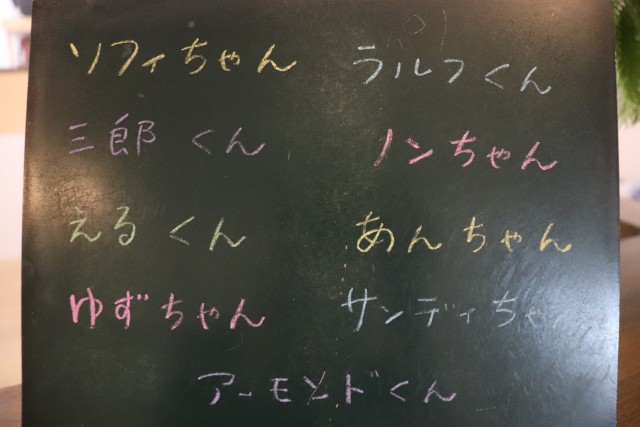 ソフィちゃん ラルフくん
三郎くん ノンちゃん
えるくん あんちゃん
ゆずちゃん サンディちゃん
アーモンドくん